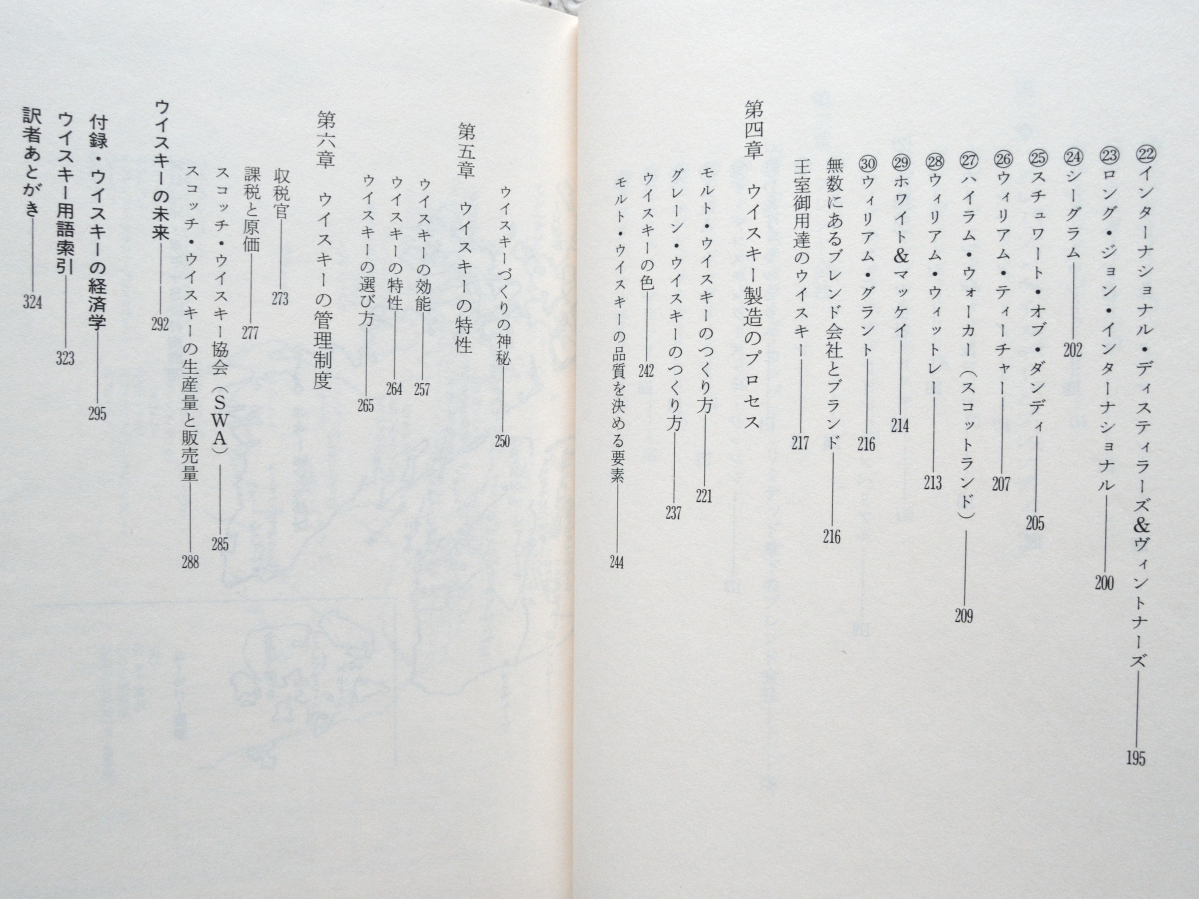 ㉒インターナショナル・ディスティラーズ&ヴィントナーズ――195
㉓ロング・ジョン・インターナショナル――200
㉔シーグラム――202
㉕スチュワート・オブ・ダンディ――205
㉖ウィリアム・ティーチャー――207
㉗ハイラム・ウォーカー(スコットランド)――209
㉘ウィリアム・ウィットレー――213
㉙ホワイト&マッケイ――214
㉚ウィリアム・グラント――216
無数にあるブレンド会社とブランド――216
王室御用達のウイスキー――217
第四章 ウイスキー製造のプロセス
モルト・ウイスキーのつくり方――221
グレーン・ウイスキーのつくり方――237
ウイスキーの色――242
モルト・ウイスキーの品質を決める要素――244
ウイスキーづくりの神秘――250
第五章 ウイスキーの特性
ウイスキーの効能――257
ウイスキーの特性――264
ウイスキーの選び方――265
第六章 ウイスキーの管理制度
収税官――273
課税と原価――277
スコッチ・ウイスキー協会(SWA)――285
スコッチ・ウイスキーの生産量と販売量――288
ウイスキーの未来――292
付録・ウイスキーの経済学――295
ウイスキー用語索引――323
訳者あとがき――324